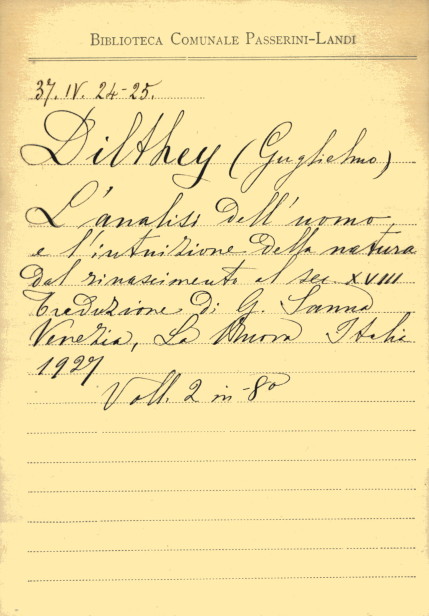 BIBLIOTECA COMUNALE PASSERINI-LANDI
37. IV. 24-25.
Dilthey (Guglielmo)
L'analisi dell'uomo
e l'intuizione della natura
dal rinascimento al sec XVIII
Traduzione di G. Sanna
Venezia, La Nuova Italia
1927
Voll. 2 in-8º